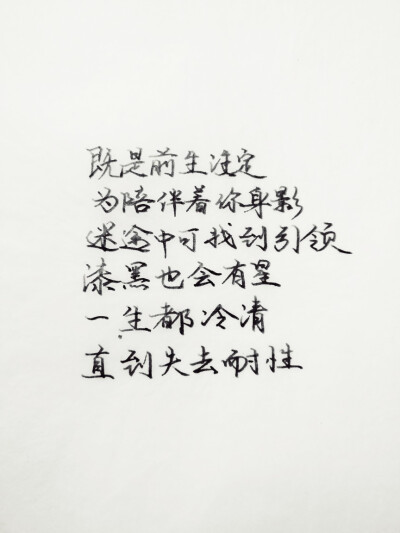 既是前生注定
为陪伴着你身影
迷途中可找到引领
漆黑也会有星
一生都冷清
直到失去耐性